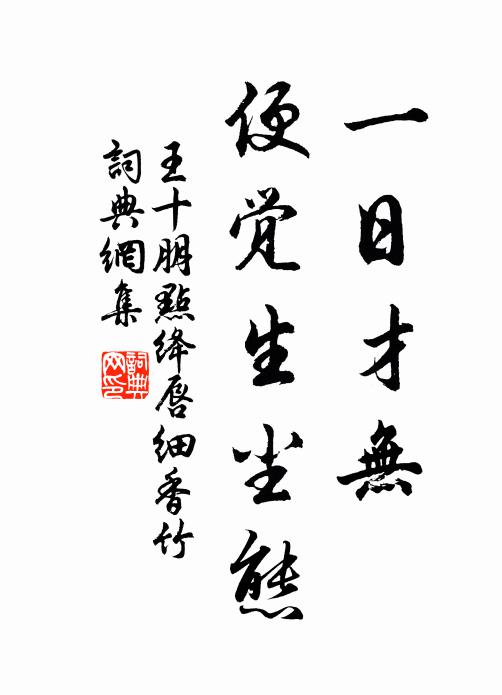 一日才無
便觉生尘態
王十朋點绛唇細香竹
詞典網集
詞典網印